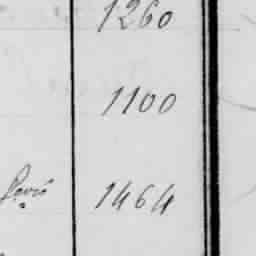 1260
1100
1464